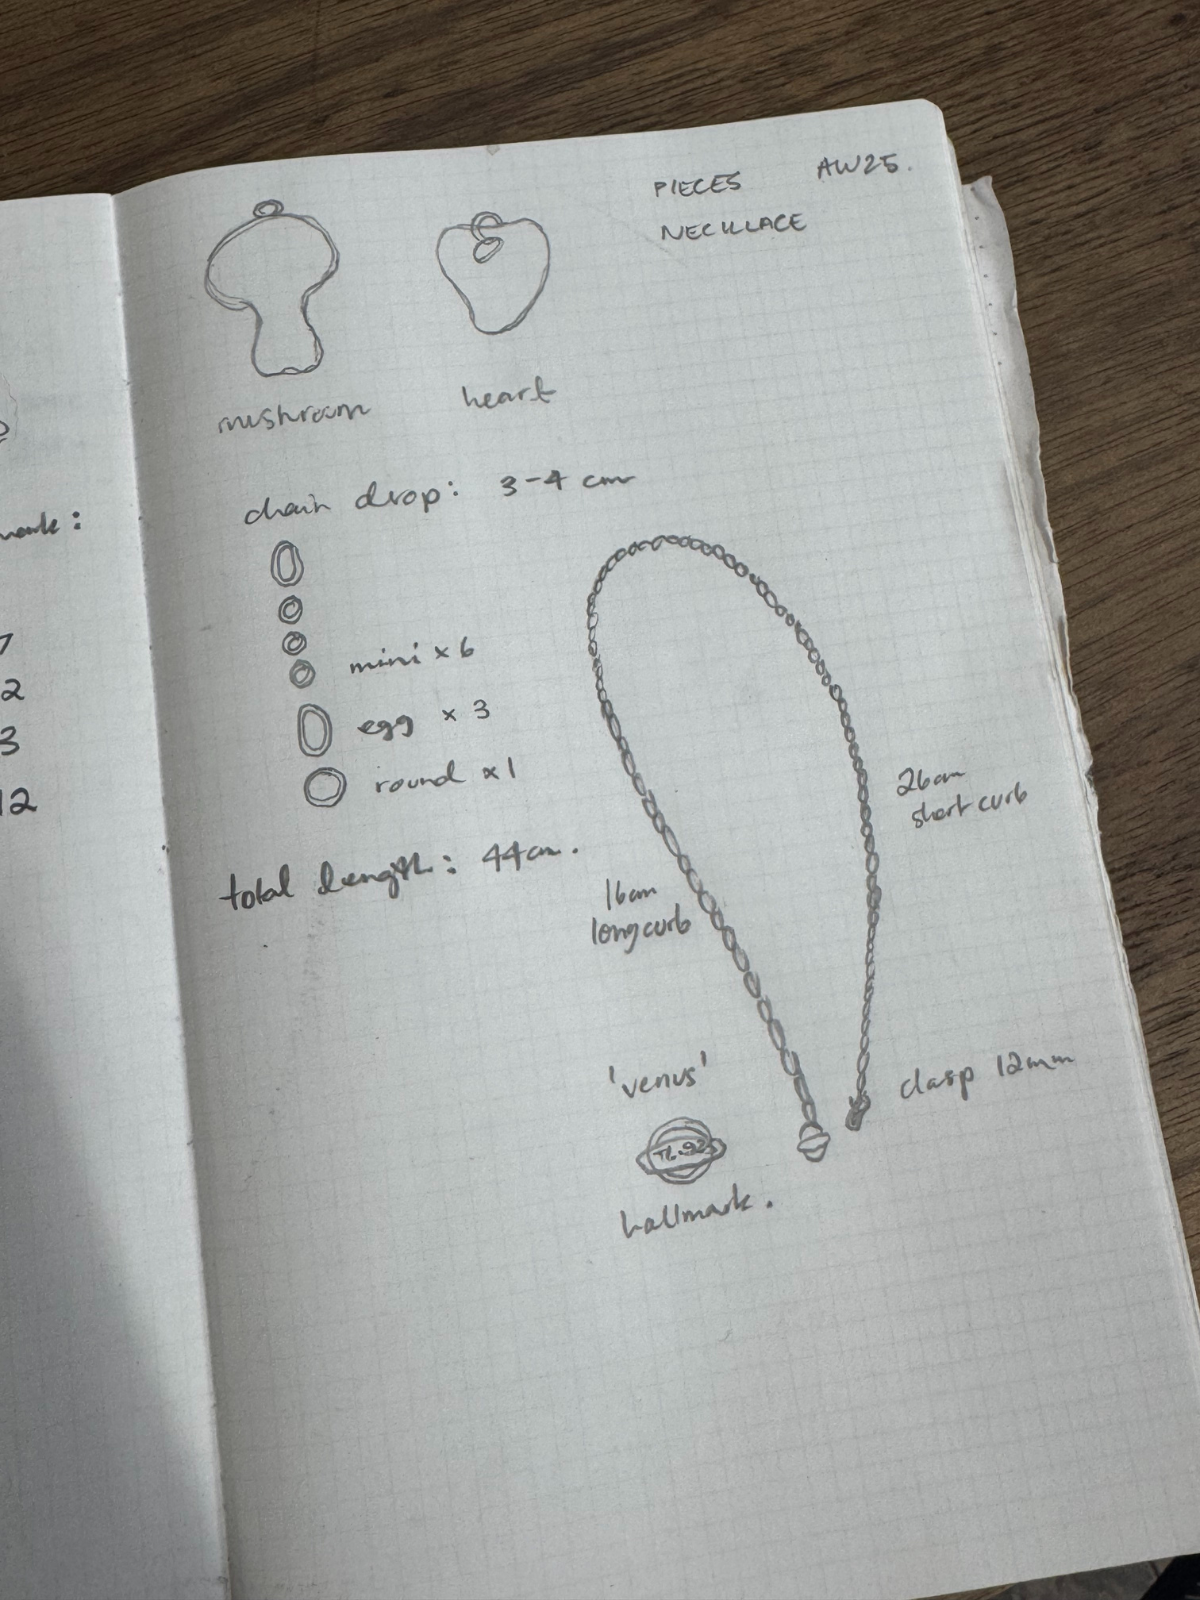 PIECES AW25.
NECKLACE
mushroom
heart
chain drop: 3-4 cm
mini x 6
egg x 3
round x1
total length: 44cm.
26cm
short curb
16cm
long curb
clasp 12mm
'venus'
hallmark.
7
2
3
12